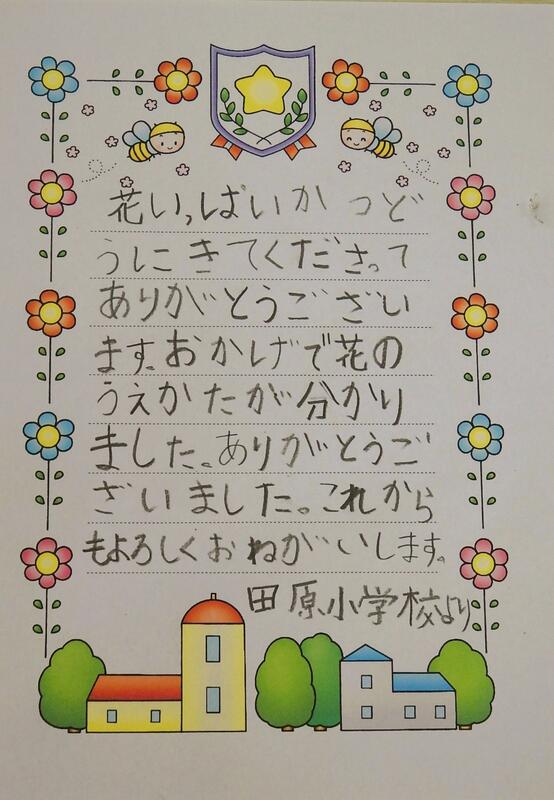 花いっぱいかつど
うにきてくださって
ありがとうござい
ます。おかげで花の
うえかたが分かり
ました。ありがとうご
ざいました。これから
もよろしくおねがいします。
田原小学校より